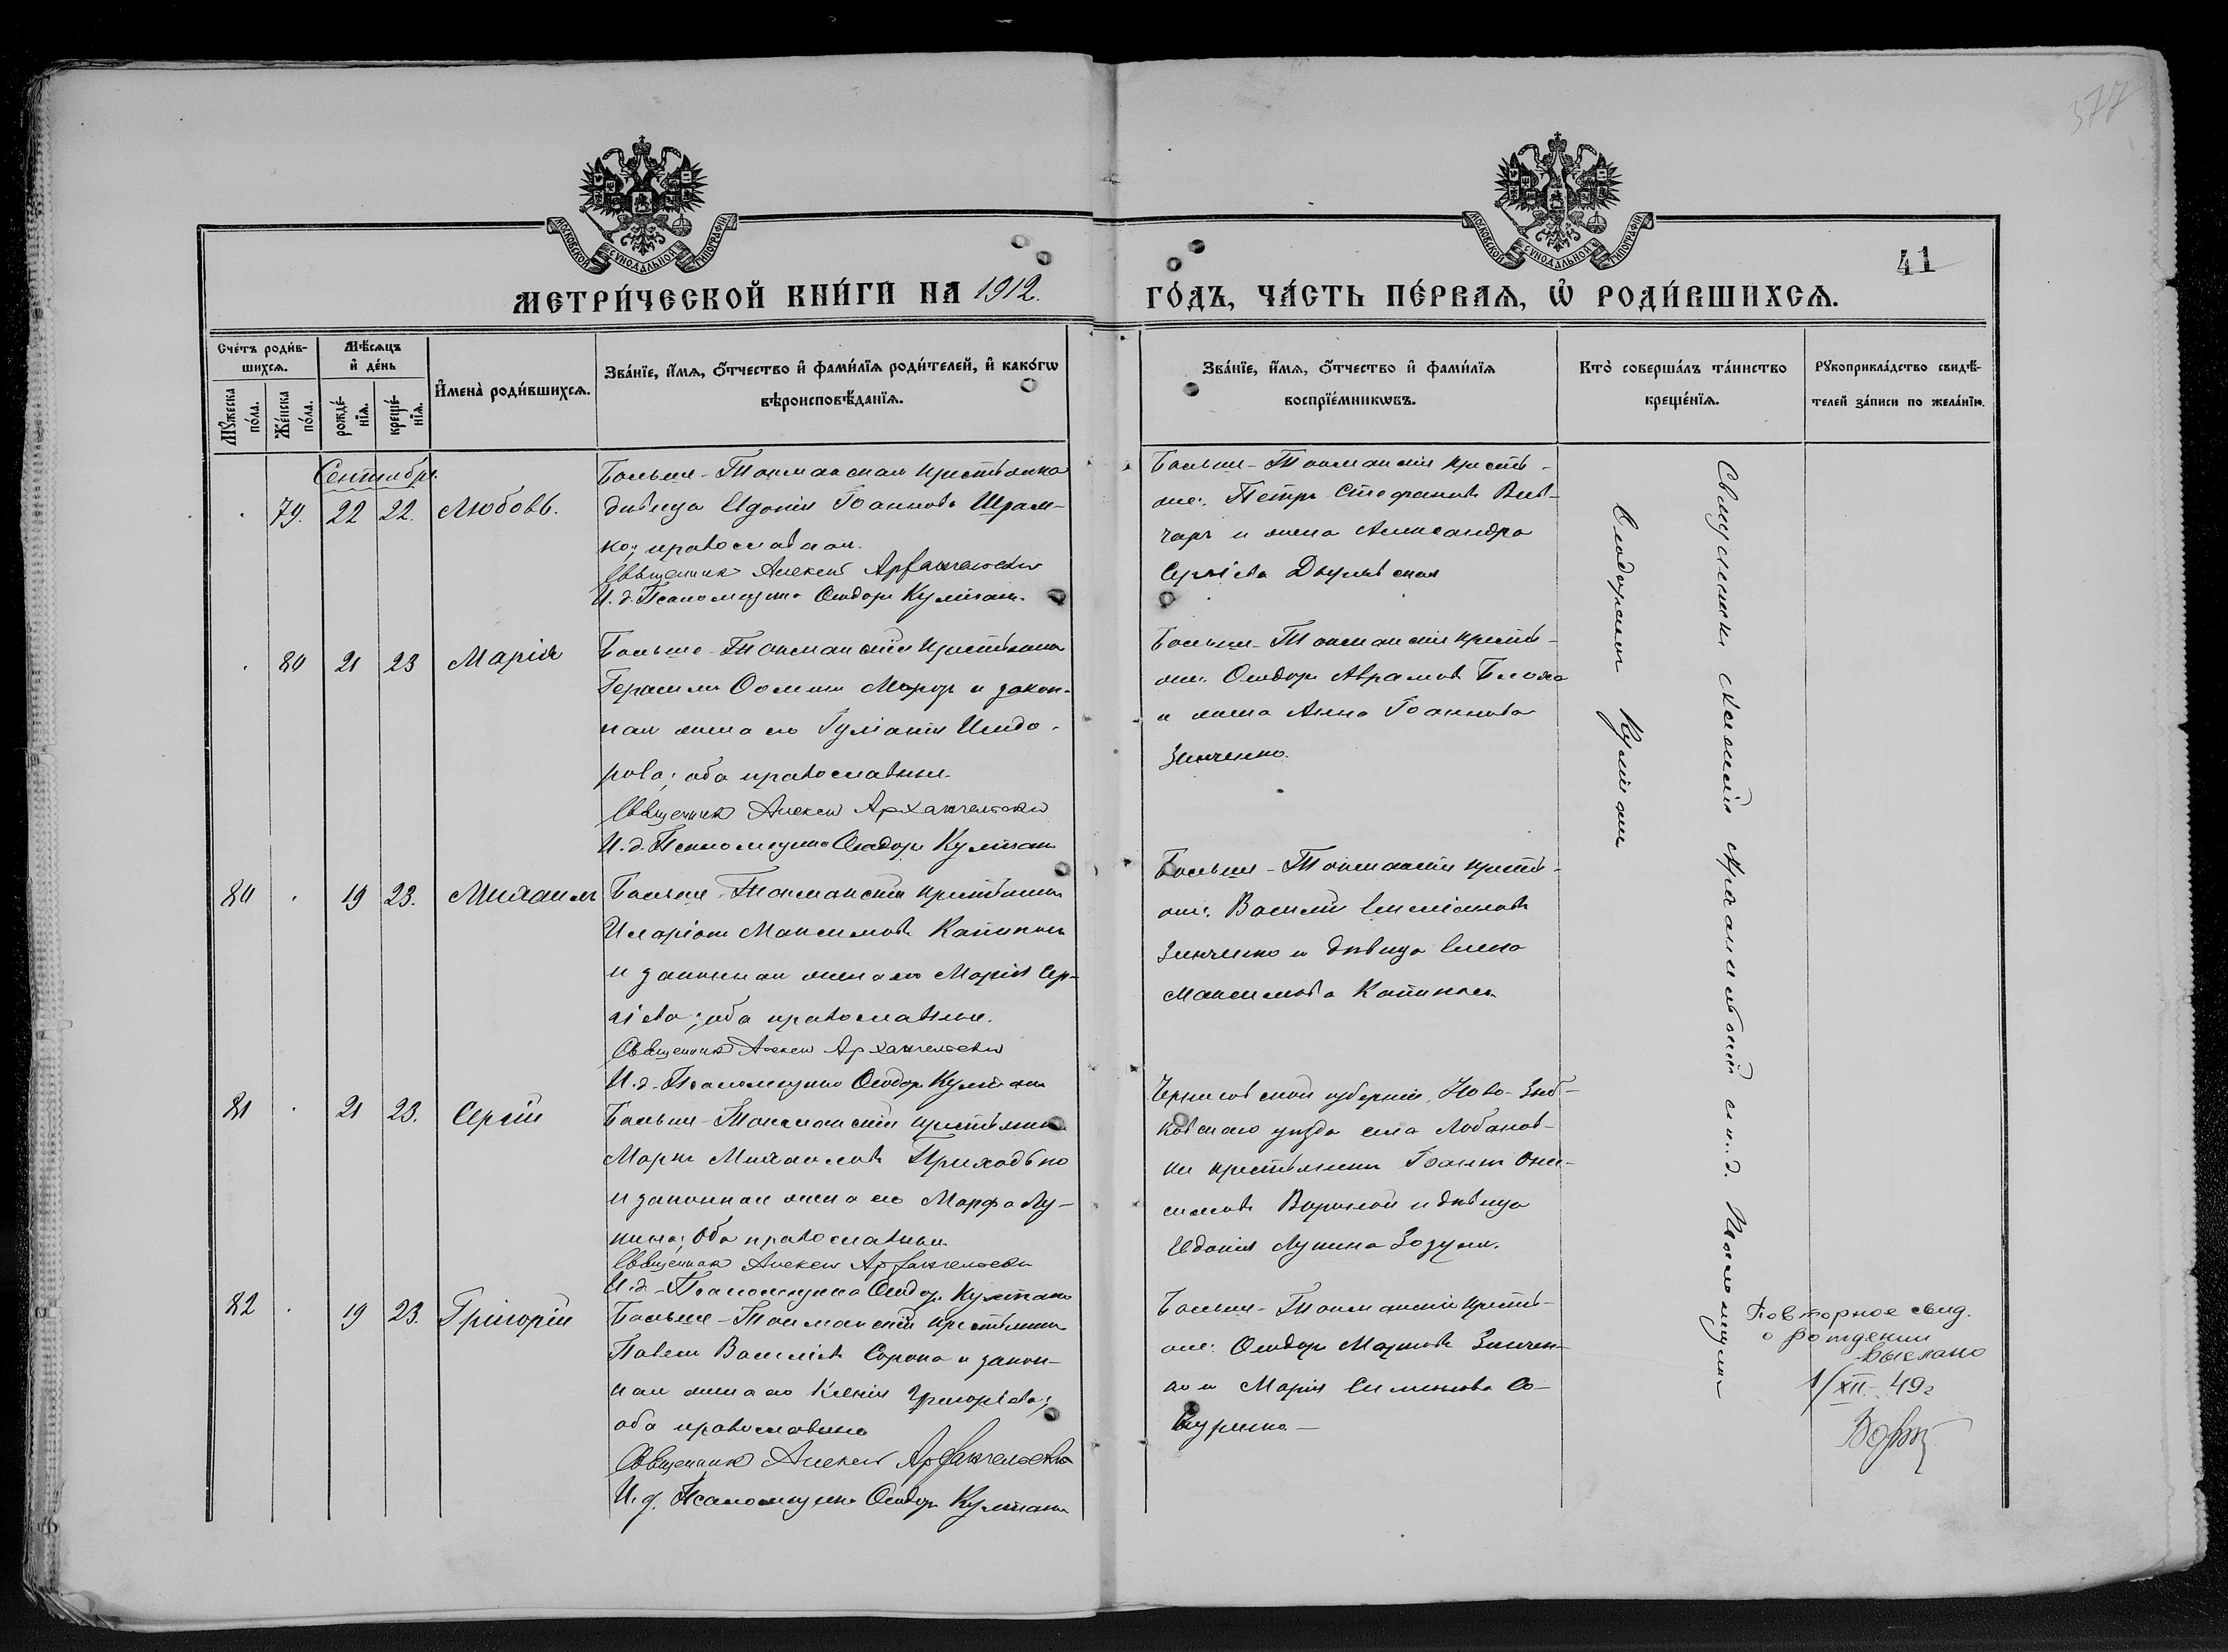 377
41
МОСКОВСКОЙ СѴНОДАЛЬНОЙ ТИПОГРАФІИ
МОСКОВСКОЙ СѴНОДАЛЬНОЙ ТИПОГРАФІИ
МЕТРИ́ЧЕСКОЙ КНИ́ГИ НА 1912.
ГО́ДЪ, ЧА́СТЬ ПЕ́РВАѦ, Ѡ҆ РОДИ́ВШИХСѦ.
Сче́тъ роди́в-
шихсѧ.
Мꙋ́жеска по́ла.
Же́нска по́ла.
Мѣ́сѧцъ
и҆ де́нь
рожде́-
нїѧ.
креще́-
нїѧ.
И҆мена̀ роди́вшихсѧ.
Зва́нїе, и҆́мѧ, ѻ҆́тчество и҆ фами́лїѧ роди́телей, и҆ како́гѡ
вѣроисповѣ́данїѧ.
Зва́нїе, и҆́мѧ, ѻ҆́тчество и҆ фами́лїѧ
воспрїе́мникѡвъ.
Кто̀ соверша́лъ та́инство
креще́нїѧ.
Рꙋкоприкла́дство свидѣ́-
телей за́писи по жела́нїю.
Сентябрь.
79. 22 22. Любовь.
Больше-Токмакская крестьянка
дѣвица Евдокія Іоаннова Шрам-
ко; православная.
Священникъ Алексій Архангельскій
И. д. Псаломщика Ѳеодоръ Кулишъ
Больше-Токмакскіе кресть-
яне: Петръ Стефановъ Вив-
чаръ и жена Александра
Сергіева
80 21 23 Марія
Больше-Токмакскій крестьянинъ
Герасимъ Ѳоминъ и закон-
ная жена его Іуліанія Исидо-
рова; оба православные.
Священникъ Алексій Архангельскій
И. д. Псаломщика Ѳеодоръ Кулишъ
Больше-Токмакскіе кресть-
яне: Ѳеодоръ Аврамовъ Блоха
и жена Анна Іоаннова
Зинченко.
80 19 23. Михаилъ
Больше-Токмакскій крестьянинъ
Иларіонъ Максимовъ
и законная жена его Марія Сер-
гіева; оба православные.
Священникъ Алексій Архангельскій
И. д. Псаломщика Ѳеодоръ Кулишъ
Больше-Токмакскіе кресть-
яне: Василій
Зинченко и дѣвица Елена
Максимова
81 21 23. Сергій
Больше-Токмакскій крестьянинъ
Маркъ Михаиловъ Приходько
и законная жена его Марфа Лу-
кина; оба православные.
Священникъ Алексій Архангельскій
И. д. Псаломщика Ѳеодоръ Кулишъ
Черниговской губерніи, Ново-Зыб-
ковскаго уѣзда села Лобанов-
ки крестьянинъ Іоаннъ Они-
симовъ и дѣвица
Евдокія Лукина Зозуля.
82 19 23. Григорій
Больше-Токмакскій крестьянинъ
Павелъ Василіевъ Сорока и закон-
ная жена его Ксенія Григоріева;
оба православные
Священникъ Алексій Архангельскій
И. д. Псаломщика Ѳеодоръ Кулишъ
Больше-Токмакскіе кресть-
яне: Ѳеодоръ Марковъ Зинчен-
ко и Марія
Священникъ Алексій Архангельскій и и. д. Псаломщика
Ѳеодоръ Кулишъ
Повторное свид.
о рождении
выслано
1/XII-49г